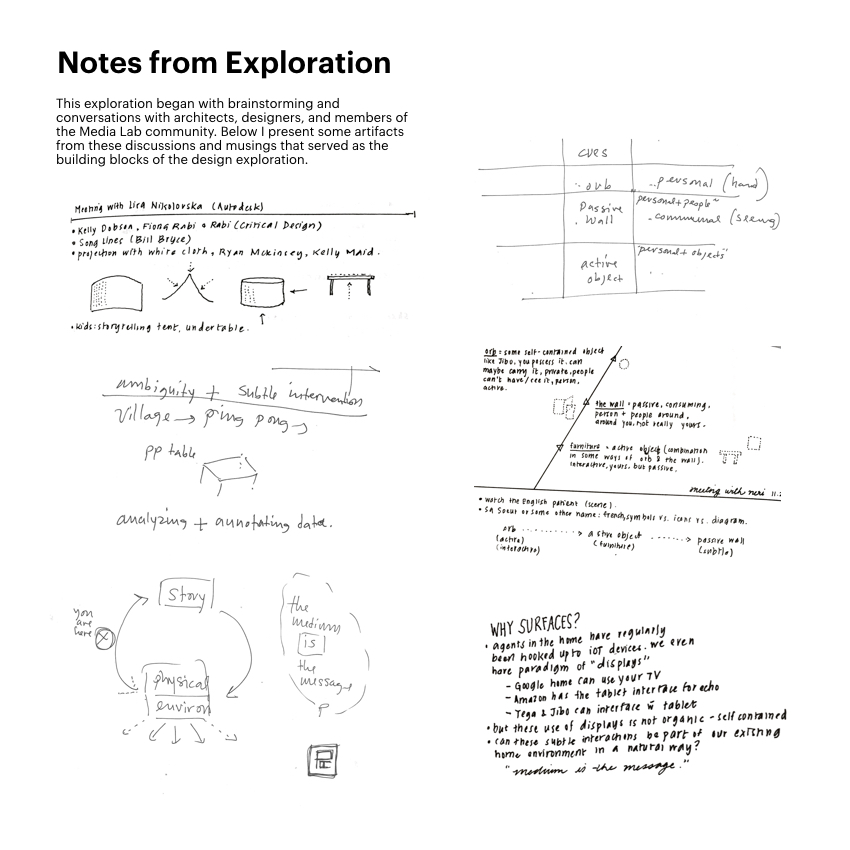 Notes from Exploration
This exploration began with brainstorming and
conversations with architects, designers, and members of
the Media Lab community. Below I present some artifacts
from these discussions and musings that served as the
building blocks of the design exploration.
Meeting with Lira Nikolovska (Autodesk)
• Kelly Dobson, Fiona Rabi & Rabi (Critical Design)
• Song Lines (Bill Bryce)
• projection with white cloth, Ryan McKinley, Kelly Maid.
• kids: storytelling tent, undertable.
ambiguity + subtle intervention
village → ping pong →
pp table
analyzing + annotating data.
you
are
here
story
physical
environ
the
medium
is
the
message
cues
orb personal (hand)
Passive
Wall
"personal + people"
communal (seeing)
active
object
"personal + objects"
orb = some self-contained object
like Jibo, you possess it. can
maybe carry it, private, people
can't have/see it, person,
active.
the wall = passive, consuming,
person + people around,
around you, not really yours.
furniture = active object (combination
in some ways of orb & the wall).
interactive, yours, but passive.
meeting with neri 11.
• watch the English patient (scene).
or some other name: french, symbols vs. icons vs. diagram.
orb → active object → passive wall
(active) (furniture) (subtle)
(interactive)
WHY SURFACES?
• agents in the home have regularly
been hooked up to ioT devices. we even
have paradigm of "displays"
- Google home can use your TV
- Amazon has the tablet interface for echo
- Tega & Jibo can interface w tablet
• but these use of displays is not organic - self contained
• can these subtle interactions be part of our existing
home environment in a natural way?
"medium is the message."